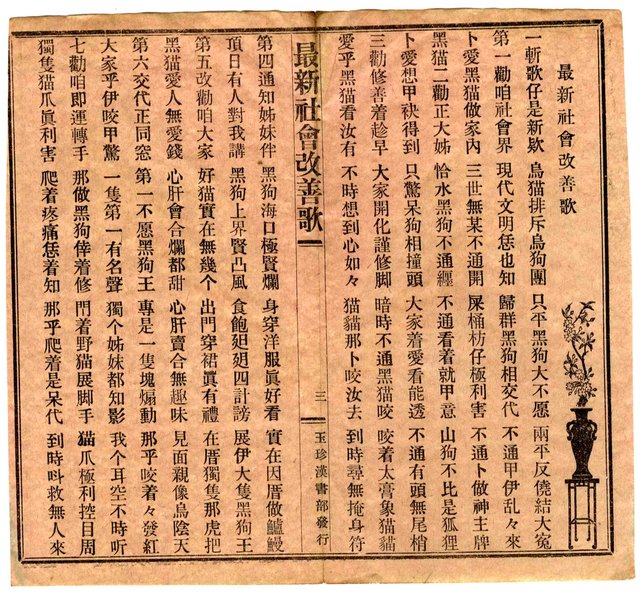 最新社會改善歌
一斬歌仔是新欵　烏猫排斥烏狗團　只平黑狗大不愿　兩平反僥結大冤
第一勸咱社會界　現代文明恁也知　歸群黑狗相交代　不通甲伊乱々來
卜愛黑猫做家內　三世無某不通開　屎桶枋仔極利害　不通卜做神主牌
黑猫二勸正大姊　恰水黑狗不通纒　不通看着就甲意　山狗不比是狐狸
卜愛想甲袂得到　只驚呆狗相撞頭　大家着愛看能透　不通有頭無尾梢
三勸修善着趁早　大家開化謹修脚　暗時不通黑猫咬　咬着太膏象猫貓
愛乎黑猫看汝有　不時想到心如々　猫貓那卜咬汝去　到時尋無掩身符
最新社會改善歌　三　玉珍漢書部發行
第四通知姊妹伴　黑狗海口極賢爛　身穿洋服眞好看　實在因厝做鱸鰻
頂日有人對我講　黑狗上界賢凸風　食飽廻廻四計謗　展伊大隻黑狗王
第五改勸咱大家　好猫實在無幾个　出門穿裙眞有禮　在厝獨隻那虎把
黑猫愛人無愛錢　心肝會合爛都甜　心肝賣合無趣味　見面親像烏陰天
第六交代正同窓　第一不愿黑狗王　專是一隻塊煽動　那乎咬着々發紅
大家乎伊咬甲驚　一隻第一有名聲　獨个姊妹都知影　我个耳空不時听
七勸咱即運轉手　那做黑狗倖着修　門着野猫展脚手　猫爪極利控目周
獨隻猫爪眞利害　爬着疼痛恁着知　那乎爬着是呆代　到時呌救無人來